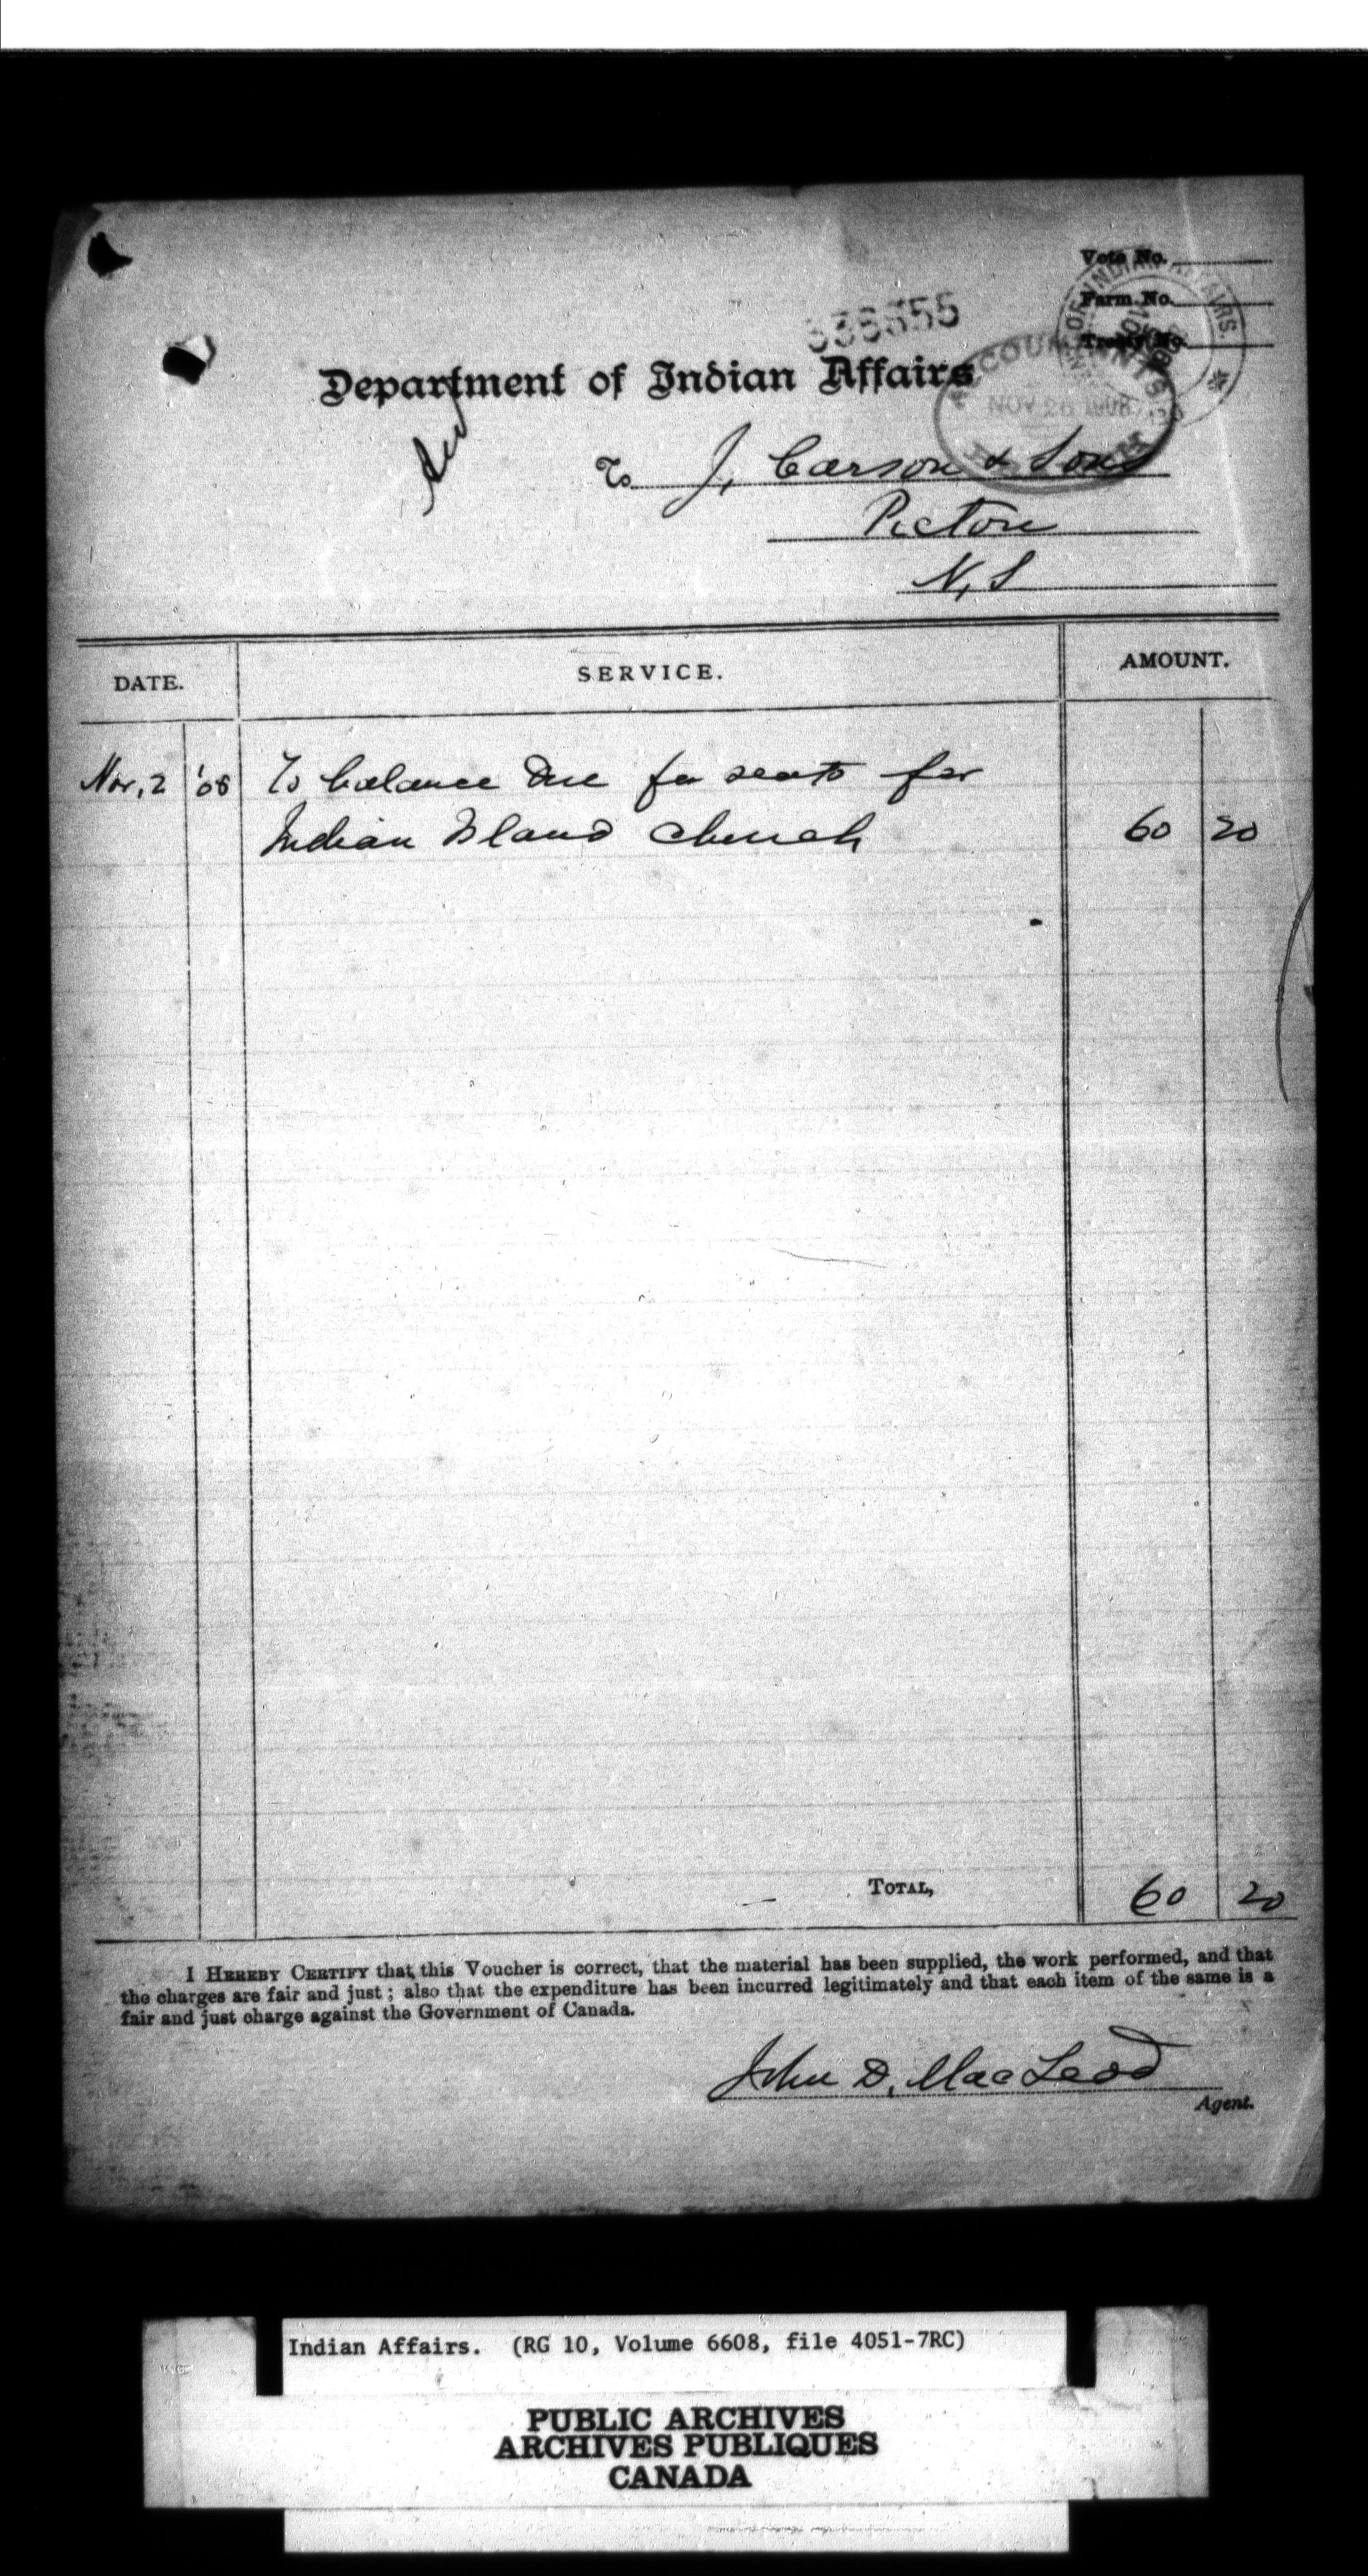 Vote No.
Farm No.
Treaty No.
Department of Indian Affairs
ACCOUNTANTS
NOV 26 1908
To J. Carson & Sons
Pictou
N.S
DATE. SERVICE. AMOUNT.
Nov. 2 '08 To balance due for seats for
Indian Island Church 60 20
TOTAL, 60 20
I HEREBY CERTIFY that this Voucher is correct, that the material has been supplied, the work performed, and that
the charges are fair and just; also that the expenditure has been incurred legitimately and that each item of the same is a
fair and just charge against the Government of Canada.
John D. MacLeod
Agent.
Indian Affairs. (RG 10, Volume 6608, file 4051-7RC)
PUBLIC ARCHIVES
ARCHIVES PUBLIQUES
CANADA